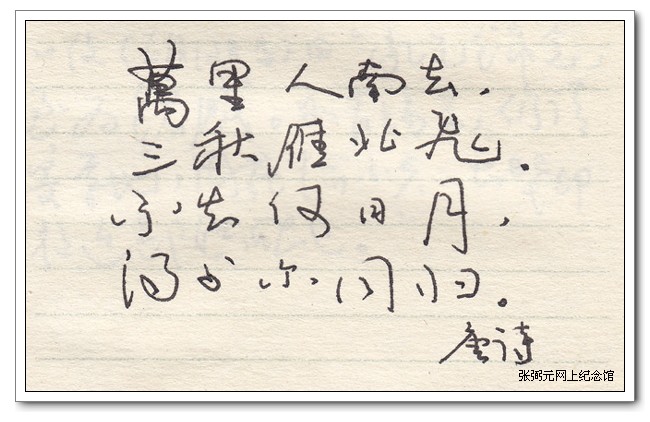 萬里人南去，
三秋雁北飛．
不知何日月，
得与尔同归。
唐诗
张弼元网上纪念馆